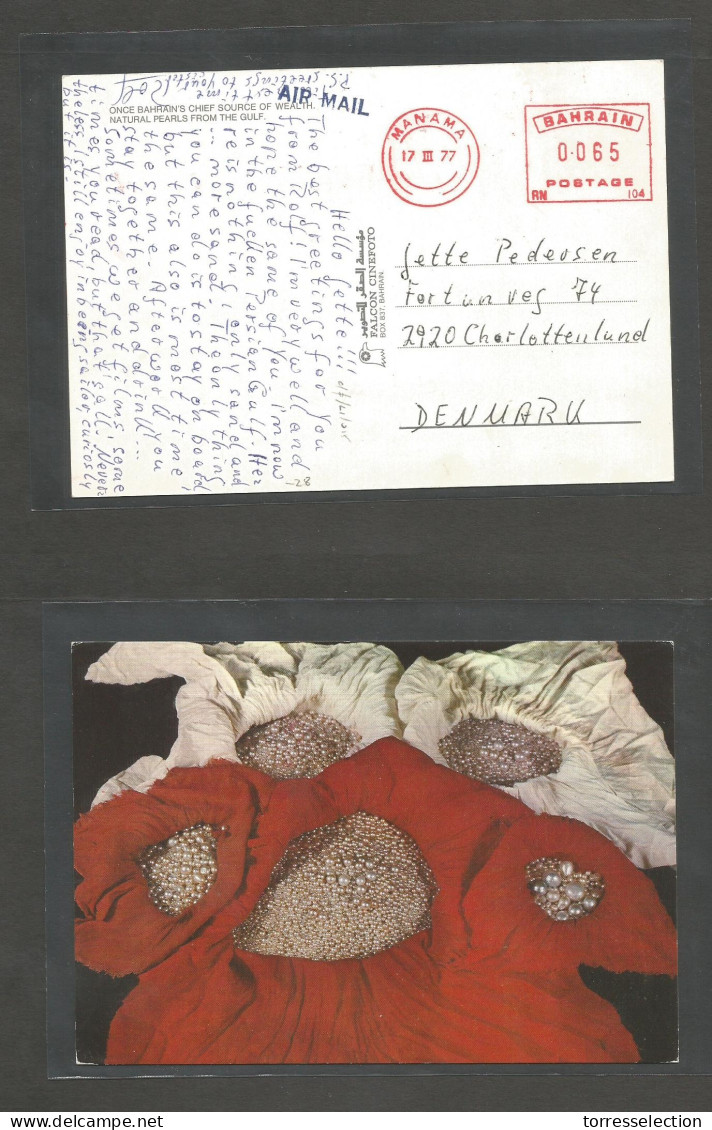 ONCE BAHRAIN'S CHIEF SOURCE OF WEALTH.
NATURAL PEARLS FROM THE GULF.
AIR MAIL
MANAMA
17 III 77
BAHRAIN
0·065
POSTAGE
RN 104
Hello Jette!!!
The best greetings for you
from Rolf! I'm very well and
hope the same of you. I'm now
in the fuellen Persian Gulf. Her
re is nothing, only sand and
... more sand. The only thing
you can do is to stay on board
but this also is most time
the same. Afterwork you
stay together and drink...
Sometimes we get films, some
times you read, but that's all. Never
theless, still enjoy in being sailor, curiosly
but it is.
est time
Rolf
P.S. greetings to your sister
مؤسسة الصقر للتصوير
FALCON CINEFOTO
BOX 837, BAHRAIN.
Jette Pedersen
Fortunvej 74
2920 Charlottenlund
DENMARK
-28
delcampe.net
torresseleccion